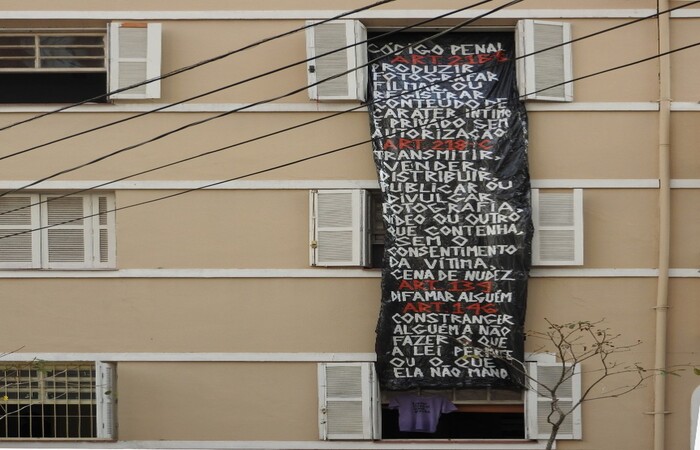 CÓDIGO PENAL
ART 216 B
PRODUZIR,
FOTOGRAFAR
FILMAR OU
REGISTRAR
CONTEÚDO DE
CARÁTER ÍNTIMO
E PRIVADO SEM
AUTORIZAÇÃO
ART 218 C
TRANSMITIR,
VENDER,
DISTRIBUIR,
PUBLICAR OU
DIVULGAR
FOTOGRAFIA,
VÍDEO OU OUTRO
QUE CONTENHA,
SEM O
CONSENTIMENTO
DA VÍTIMA,
CENA DE NUDEZ
ART 139
DIFAMAR ALGUÉM
ART 146
CONSTRANGER
ALGUÉM A NÃO
FAZER O QUE
A LEI PERMITE
OU O QUE
ELA NÃO MANDA